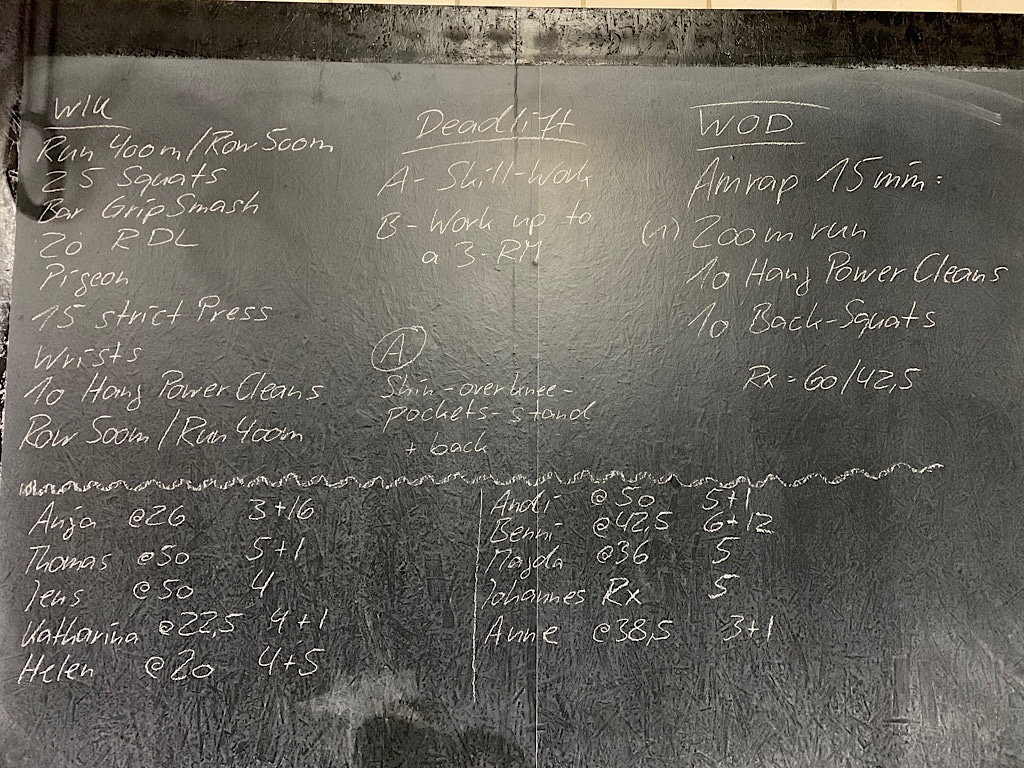 W/U
Run 400m/Row 500m
25 Squats
Bar Grip Smash
20 RDL
Pigeon
15 strict Press
Wrists
10 Hang Power Cleans
Row 500m/Run 400m
Deadlift
A- Skill-Work
B- Work up to
a 3-RM
A
Shin-over knee-
pockets-stand
+ back
WOD
Amrap 15min:
(1) 200m run
10 Hang Power Cleans
10 Back-Squats
Rx = 60/42,5
Anja @26 3+16
Thomas @50 5+1
Jens @50 4
Katharina @22,5 4+1
Helen @20 4+5
Andi @50 5+1
Benni @42,5 6+12
Magda @36 5
Johannes Rx 5
Anne @38,5 3+1